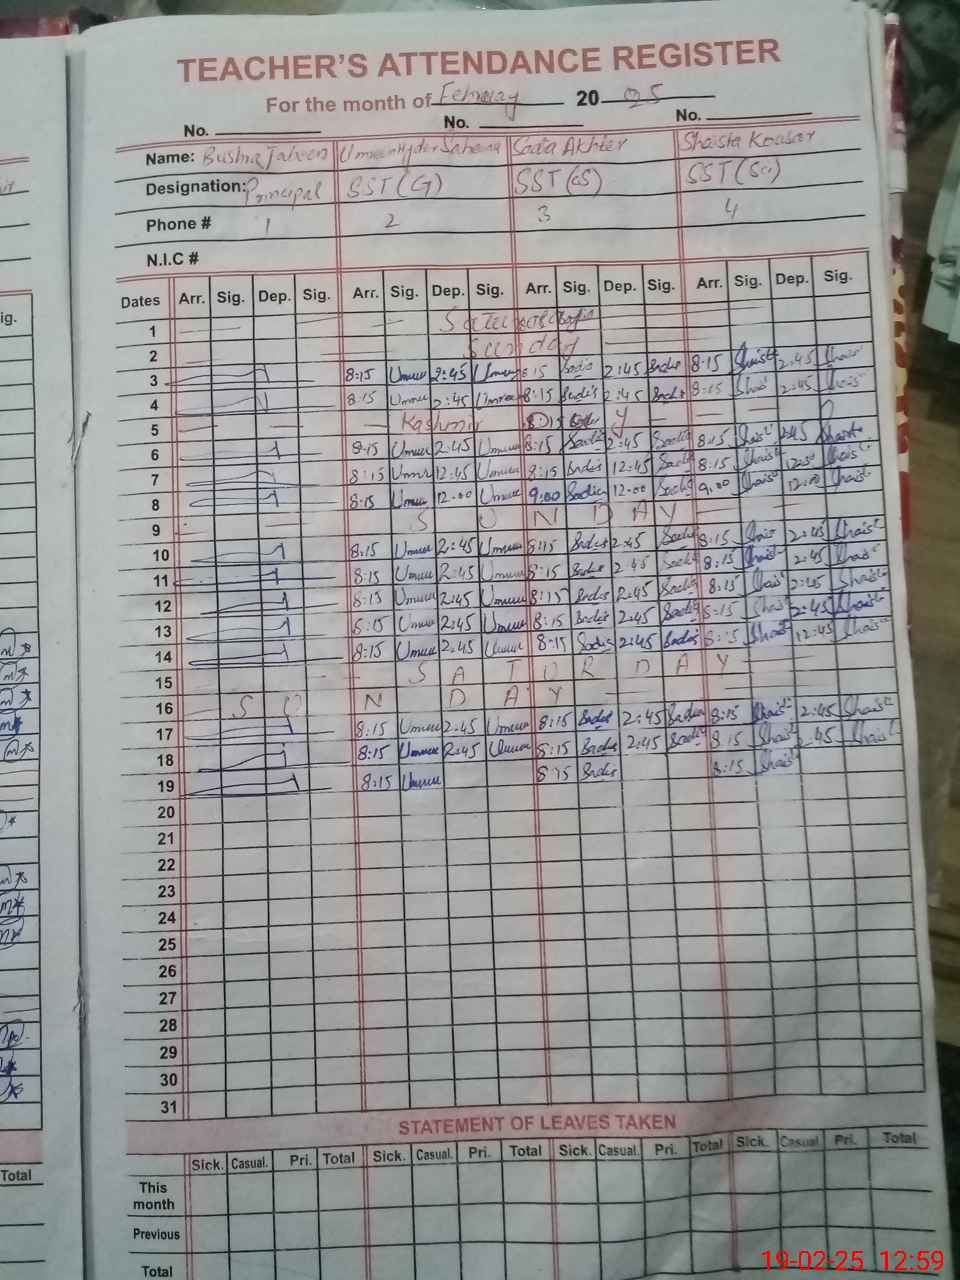 TEACHER'S ATTENDANCE REGISTER
For the month of February 20 25
No. No. No.
Name: Bushra Jabeen Umreen Hyder Saheena Sadia Akhter Shaista Kousar
Designation: Principal SST (G) SST (GS) SST (Sci)
Phone # 1 2 3 4
N.I.C #
Dates Arr. Sig. Dep. Sig. Arr. Sig. Dep. Sig. Arr. Sig. Dep. Sig. Arr. Sig. Dep. Sig.
1
2 Sunday
3 8:15 Umree 2:45 Umree 8:15 Sadia 2:45 Sadia 8:15 Shaist 2:45 Shaist
4 8:15 Umree 2:45 Umree 8:15 Sadia 2:45 Sadia 8:15 Shais 2:45 Shais
5 Kashmir 8:15 Y
6 8:15 Umree 2:45 Umree 8:15 Sadia 2:45 Sadia 8:15 Shaist 2:45 Shaista
7 8:15 Umree 12:45 Umree 8:15 Sadia 12:45 Sadia 8:15 Shaist 12:50 Shaist
8 8:15 Umree 12:00 Umree 9:00 Sadia 12:00 Sadia 9:00 Shaist 12:00 Shaist
9 S U N D A Y
10 8:15 Umree 2:45 Umree 8:15 Sadia 2:45 Sadia 8:15 Shais 2:45 Shaist
11 8:15 Umree 2:45 Umree 8:15 Sadia 2:45 Sadia 8:15 Shaist 2:45 Shaist
12 8:15 Umree 2:45 Umree 8:15 Sadia 2:45 Sadia 8:15 Shais 2:45 Shaist
13 8:15 Umree 2:45 Umree 8:15 Sadia 2:45 Sadia 8:15 Shaist 2:45 Shaist
14 8:15 Umree 2:45 Umree 8:15 Sadia 2:45 Sadia 8:15 Shaist 12:45 Shaist
15 S A T U R D A Y
16 S U N D A Y
17 8:15 Umree 2:45 Umree 8:15 Sadia 2:45 Sadia 8:15 Shaist 2:45 Shaist
18 8:15 Umree 2:45 Umree 8:15 Sadia 2:45 Sadia 8:15 Shaist 2:45 Shaist
19 8:15 Umree 8:15 Sadia 8:15 Shaist
20
21
22
23
24
25
26
27
28
29
30
31
STATEMENT OF LEAVES TAKEN
Sick. Casual. Pri. Total Sick. Casual. Pri. Total Sick. Casual. Pri. Total Sick. Casual. Pri. Total
This month
Previous
Total
ig.
Total
19-02-25 12:59